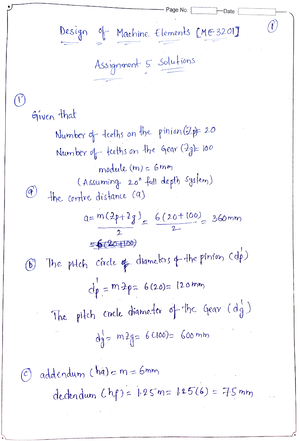 Page No. Date
1
Design of Machine Elements [ME3201]
Assignment 5 Solutions
1)
Given that
Number of teeths on the pinion (Zp)= 20
Number of teeths on the Gear (Zg)= 100
module (m) = 6mm
(Assuming 20° full depth system)
(a) the centre distance (a)
a= m(Zp+Zg)/2 = 6(20+100)/2 = 360mm
= 6(20+100)
(b) The pitch circle of diameters of the pinion (d'p)
d'p = mZp = 6(20)= 120mm
The pitch circle diameter of the Gear (d'g)
d'g = mZg = 6(100)= 600mm
(c) addendum (ha) = m = 6mm
dedendum (hf) = 1.25m = 1.25(6) = 7.5mm